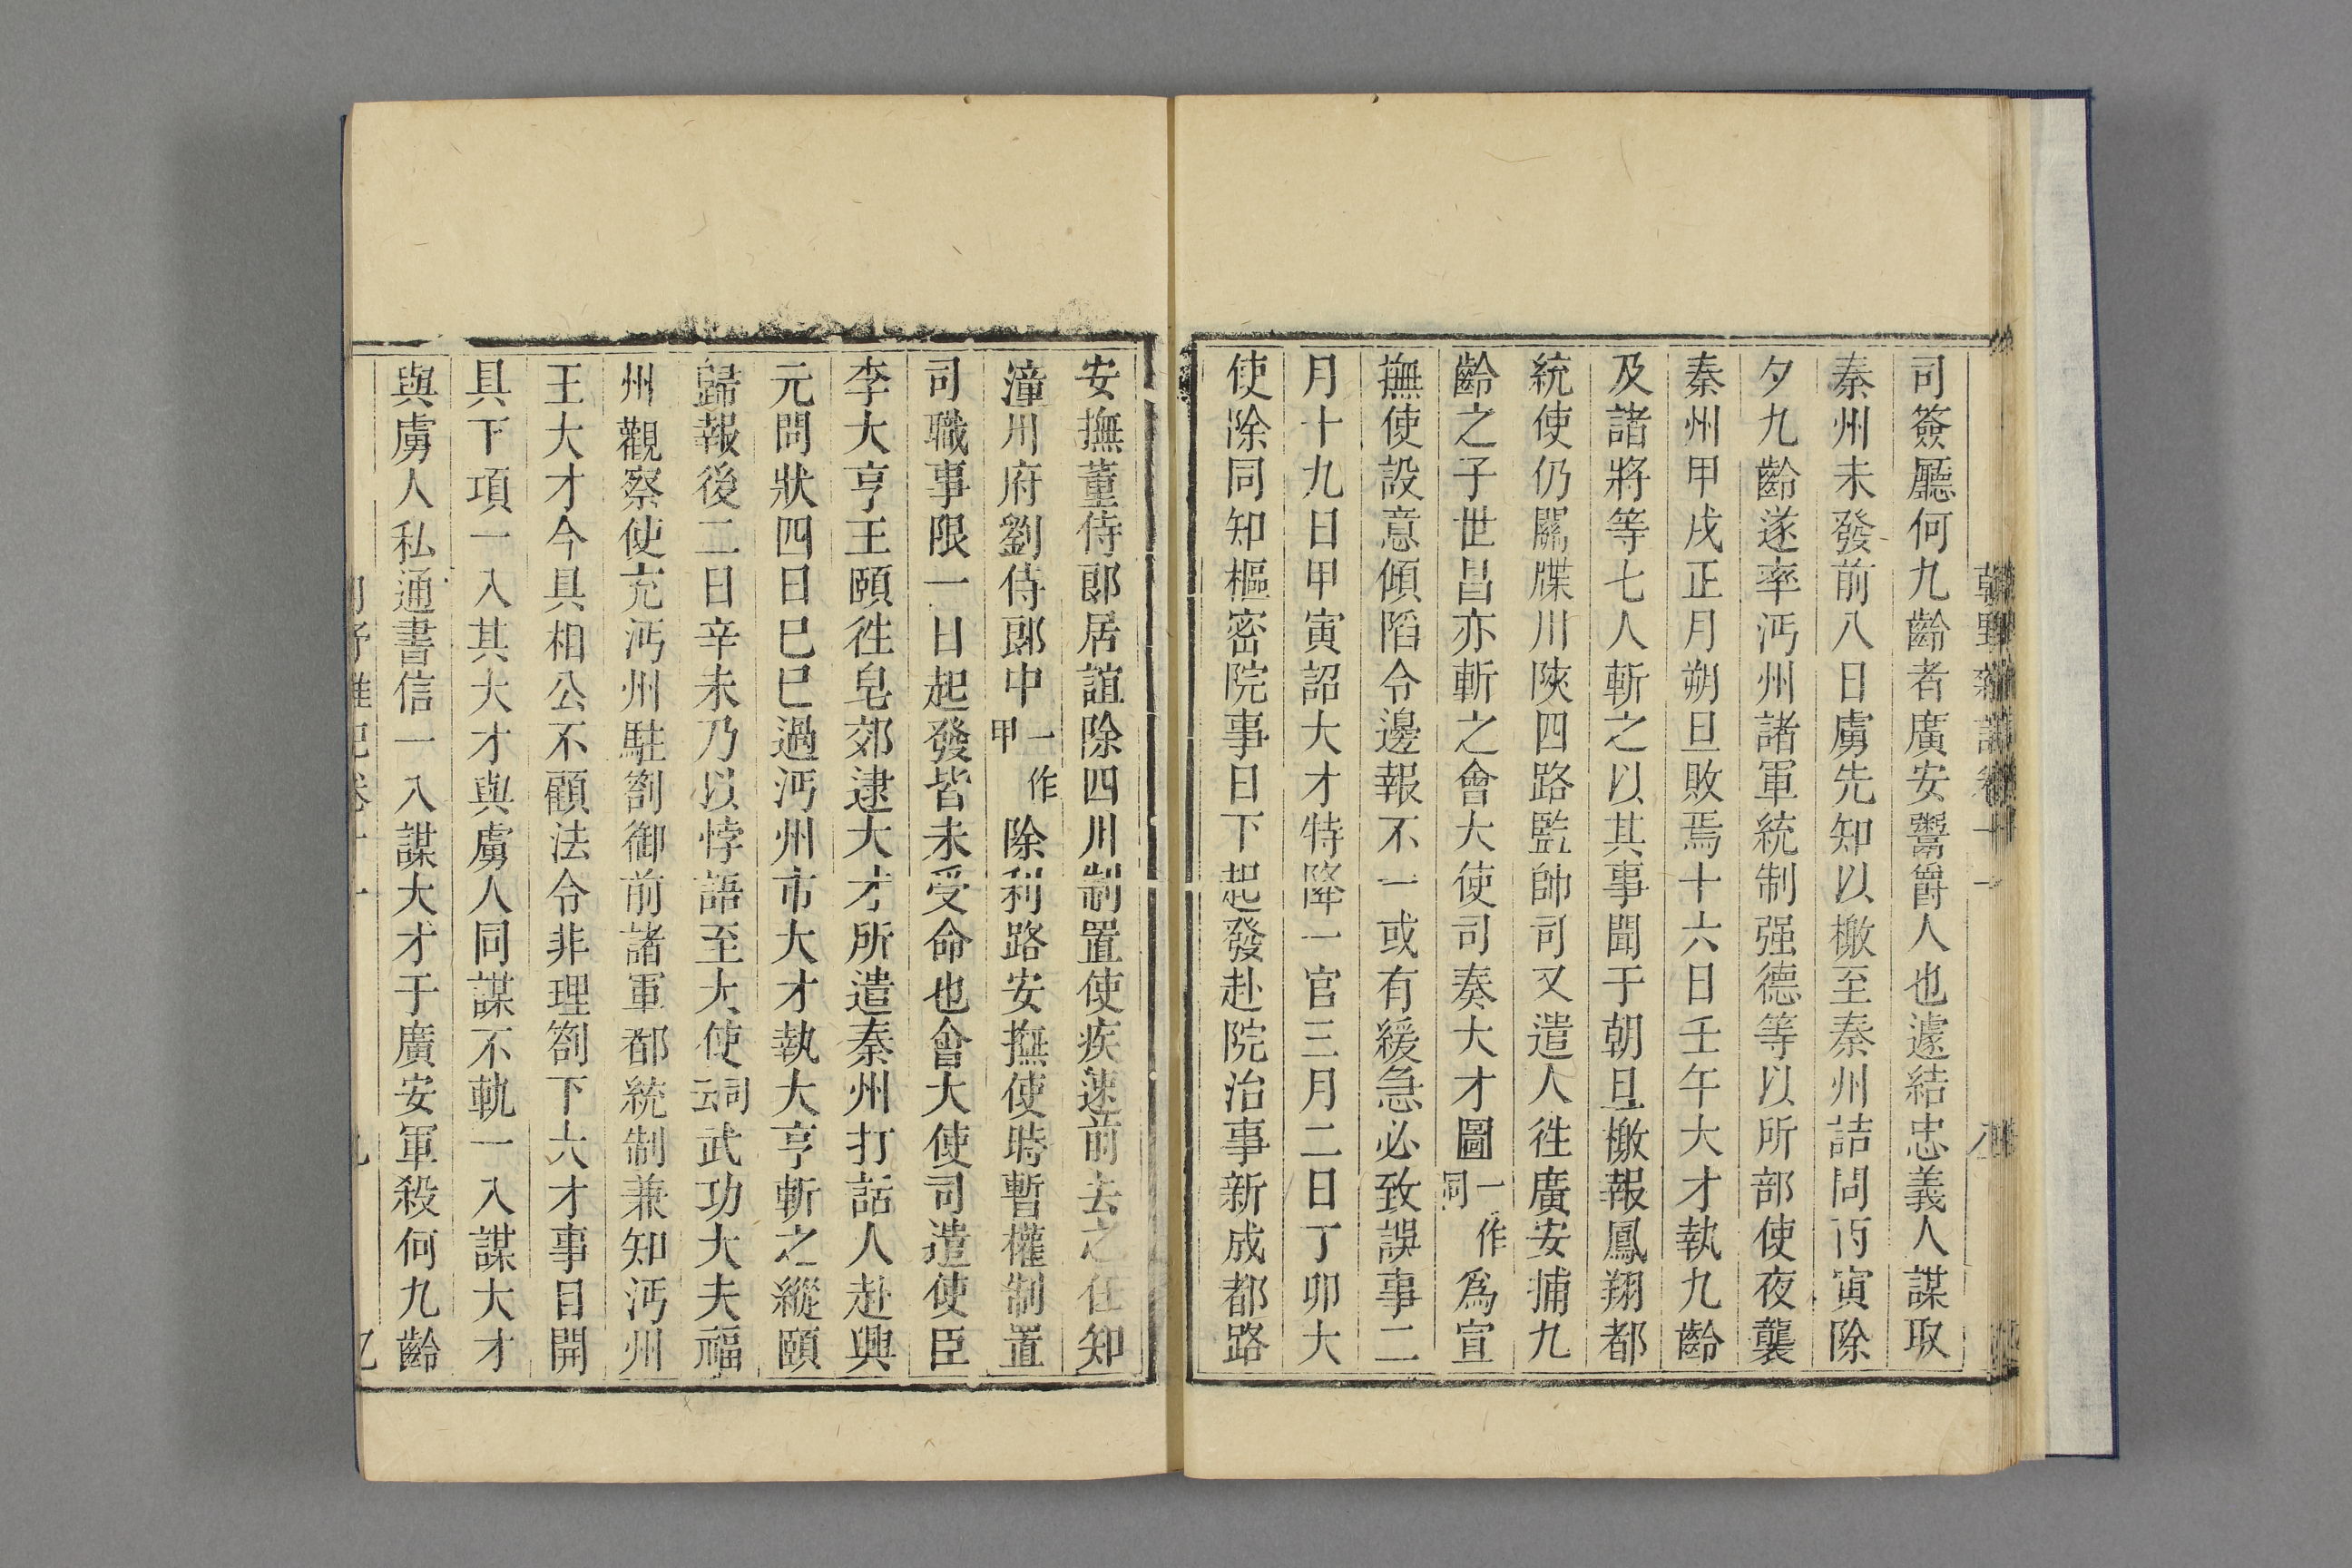 司簽廳何九齡者廣安鬻爵人也遽結忠義人謀取
秦州未發前八日虜先知以檄至秦州詰問丙寅除
夕九齡遂率沔州諸軍統制强德等以所部使夜襲
秦州甲戌正月朔旦敗焉十六日壬午大才執九齡
及諸將等七人斬之以其事聞于朝旦檄報鳳翔都
統使仍關牒川陝四路監帥司又遣人徃廣安捕九
齡之子世昌亦斬之會大使司奏大才圖一作祠爲宣
撫使設意傾陷令邊報不一或有緩急必致誤事二
月十九日甲寅詔大才特降一官三月二日丁卯大
使除同知樞密院事日下起發赴院治事新成都路
安撫董侍郎居誼除四川制置使疾速前去之任知
潼川府劉侍郎中一作甲除利路安撫使時暫權制置
司職事限一日起發皆未受命也會大使司遣使臣
李大亨王頤徃皂郊逮大才所遣秦州打話人赴興
元問狀四日巳巳過沔州市大才執大亨斬之縱頤
歸報後二日辛未乃以悖語至大使司云武功大夫福
州觀察使充沔州駐劄御前諸軍都統制兼知沔州
王大才今具相公不顧法令非理劄下大才事日開
具下項一入其大才與虜人同謀不軌一入謀大才
與虜人私通書信一入謀大才于廣安軍殺何九齡